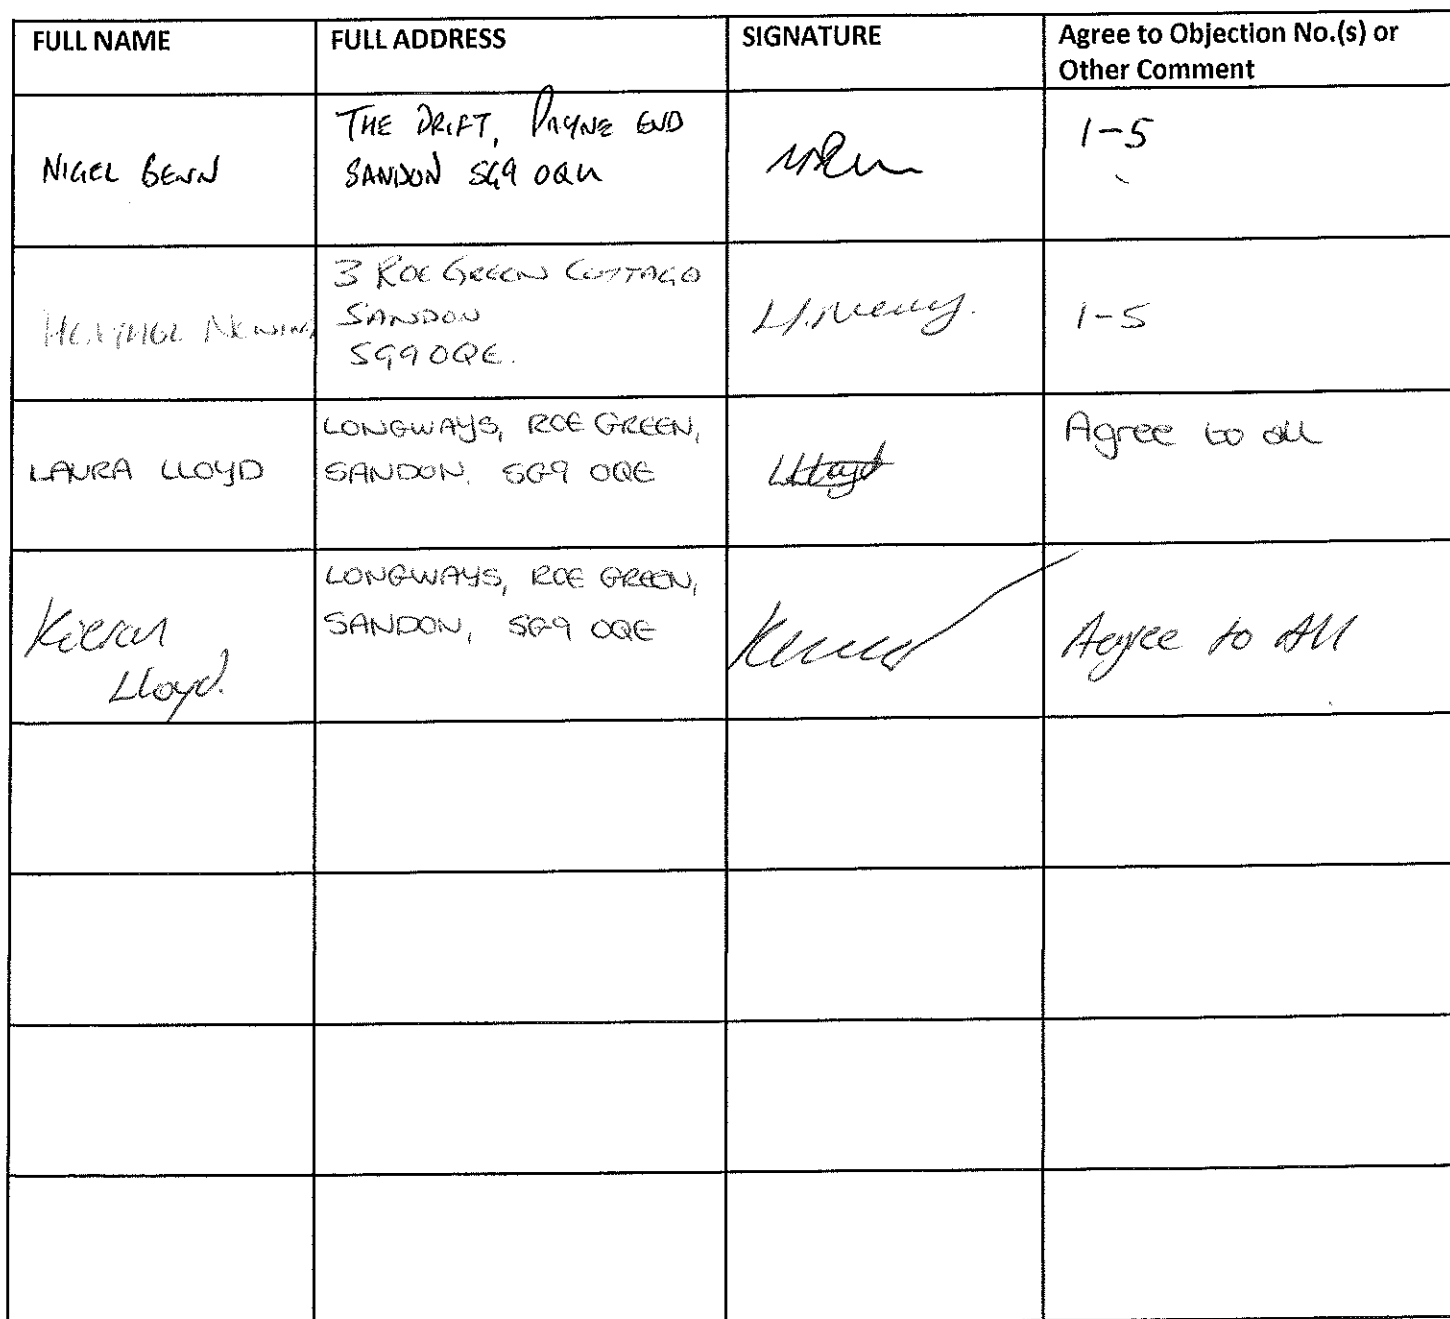 FULL NAME
FULL ADDRESS
SIGNATURE
Agree to Objection No.(s) or
Other Comment
NIGEL BENN
THE DRIFT, PAYNE END
SANDON SG9 0QU
1-5
3 ROE GREEN COTTAGO
SANDON
SG9 0QE.
1-5
LAURA LLOYD
LONGWAYS, ROE GREEN,
SANDON, SG9 0QE
LLloyd
Agree to all
Kieran
Lloyd.
LONGWAYS, ROE GREEN,
SANDON, SG9 0QE
Agree to All